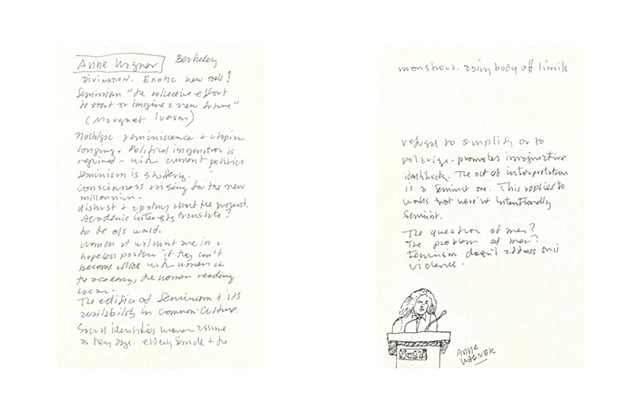 Anne Wagner Berkeley
Division. Exotic new tools?
Feminism "the collective effort
to start or imagine a new future"
(Margaret
Nostalgic reminiscence + utopian
longing. Political imagination is
required - with current politics
feminism is
consciousness raising for the new
millennium.
distrust + apathy about the present.
Academic interests translate
to the world.
women at walmart are in a
hopeless position if they can't
become allies with women in
the academy, the woman reading
The edifice of feminism + its
availability in common culture.
Social identities women assume
as they age. elderly female + the
monstrous. aging body off limits
refusal to simplify or to
polarize. promotes imaginative
The act of interpretation
is a feminist one. This applies to
works that weren't intentionally
feminist.
The question of men?
The problem of men?
Feminism doesn't address
violence.
ANNE
WAGNER